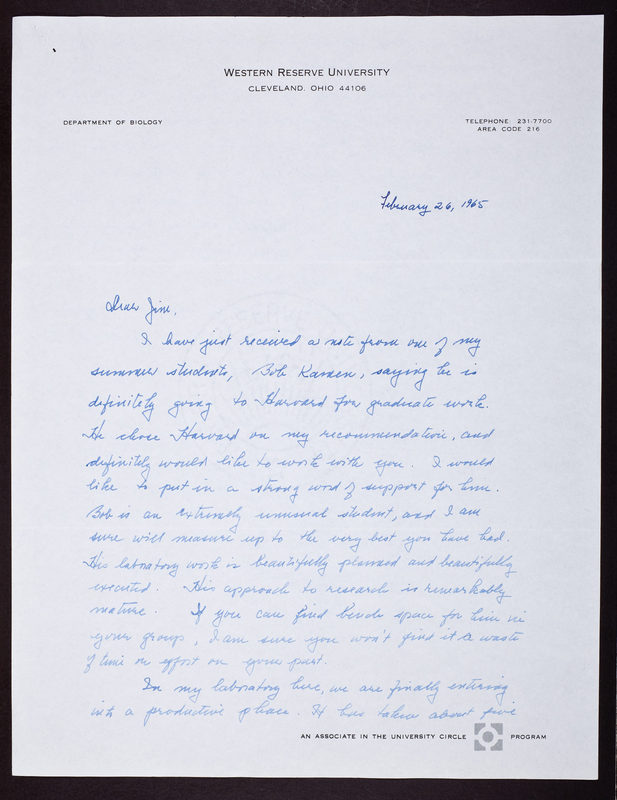 WESTERN RESERVE UNIVERSITY
CLEVELAND, OHIO 44106
DEPARTMENT OF BIOLOGY
TELEPHONE: 231-7700
AREA CODE 216
February 26, 1965
Dear Jim,
I have just received a note from one of my
summer students, Bob Kamen, saying he is
definitely going to Harvard for graduate work.
He chose Harvard on my recommendation, and
definitely would like to work with you. I would
like to put in a strong word of support for him.
Bob is an extremely unusual student, and I am
sure will measure up to the very best you have had.
His laboratory work is beautifully planned and beautifully
executed. His approach to research is remarkably
mature. If you can find bench space for him in
your group, I am sure you won't find it a waste
of time or effort on your part.
In my laboratory here, we are finally entering
into a productive phase. It has taken about five
AN ASSOCIATE IN THE UNIVERSITY CIRCLE PROGRAM